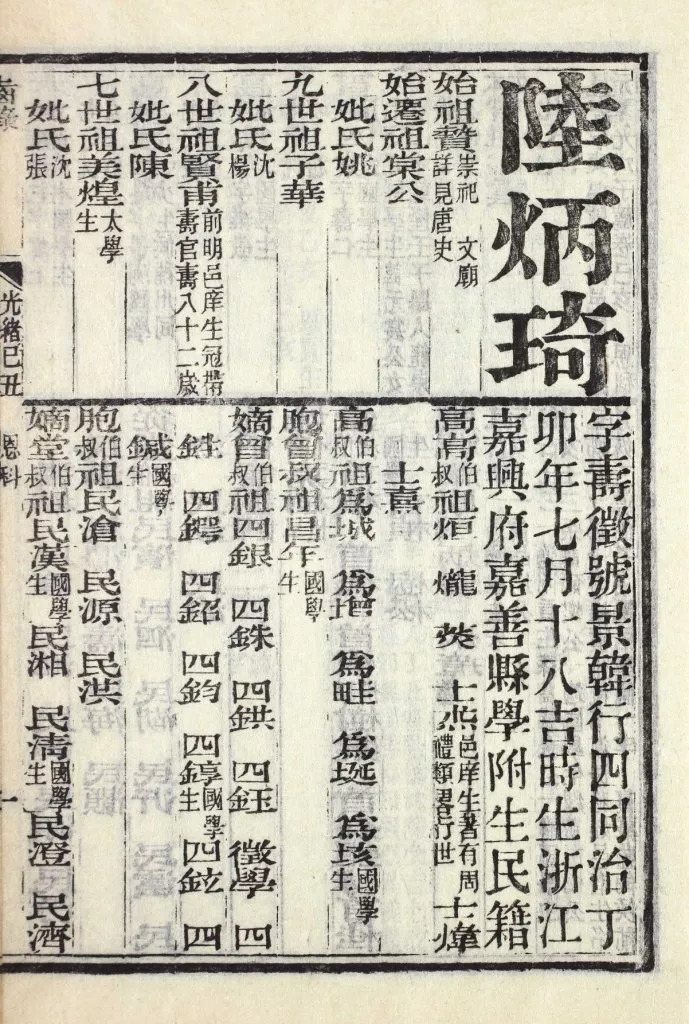 陸炳琦
字壽徵號景韓行四同治丁
卯年七月十八吉時生浙江
嘉興府嘉善縣學附生民籍
始祖贄崇祀文廟詳見唐史
始遷祖棠公
妣氏姚
九世祖子華
妣氏沈楊
八世祖賢甫前明邑庠生冠帶壽官壽八十二歲
妣氏陳
七世祖美煌太學生
妣氏沈張
高高伯叔祖烜 爖 煐 士燕邑庠生著有周禮類習行世 士煒
士熹
高伯叔祖爲城 爲增 爲畦 爲埏 爲垓國學生
胞曾叔祖昌年國學生
嫡曾伯叔祖四銀 四銖 四鉷 四鈺 徵學 四
鉎 四鍔 四鉊 四鈞 四錞國學生 四鉉 四
鍼國學生
胞伯叔祖民滄 民源 民洪
嫡堂伯叔祖民漢國學生 民湘 民淸國學生 民澄 民濟
光緒己丑 恩科 一